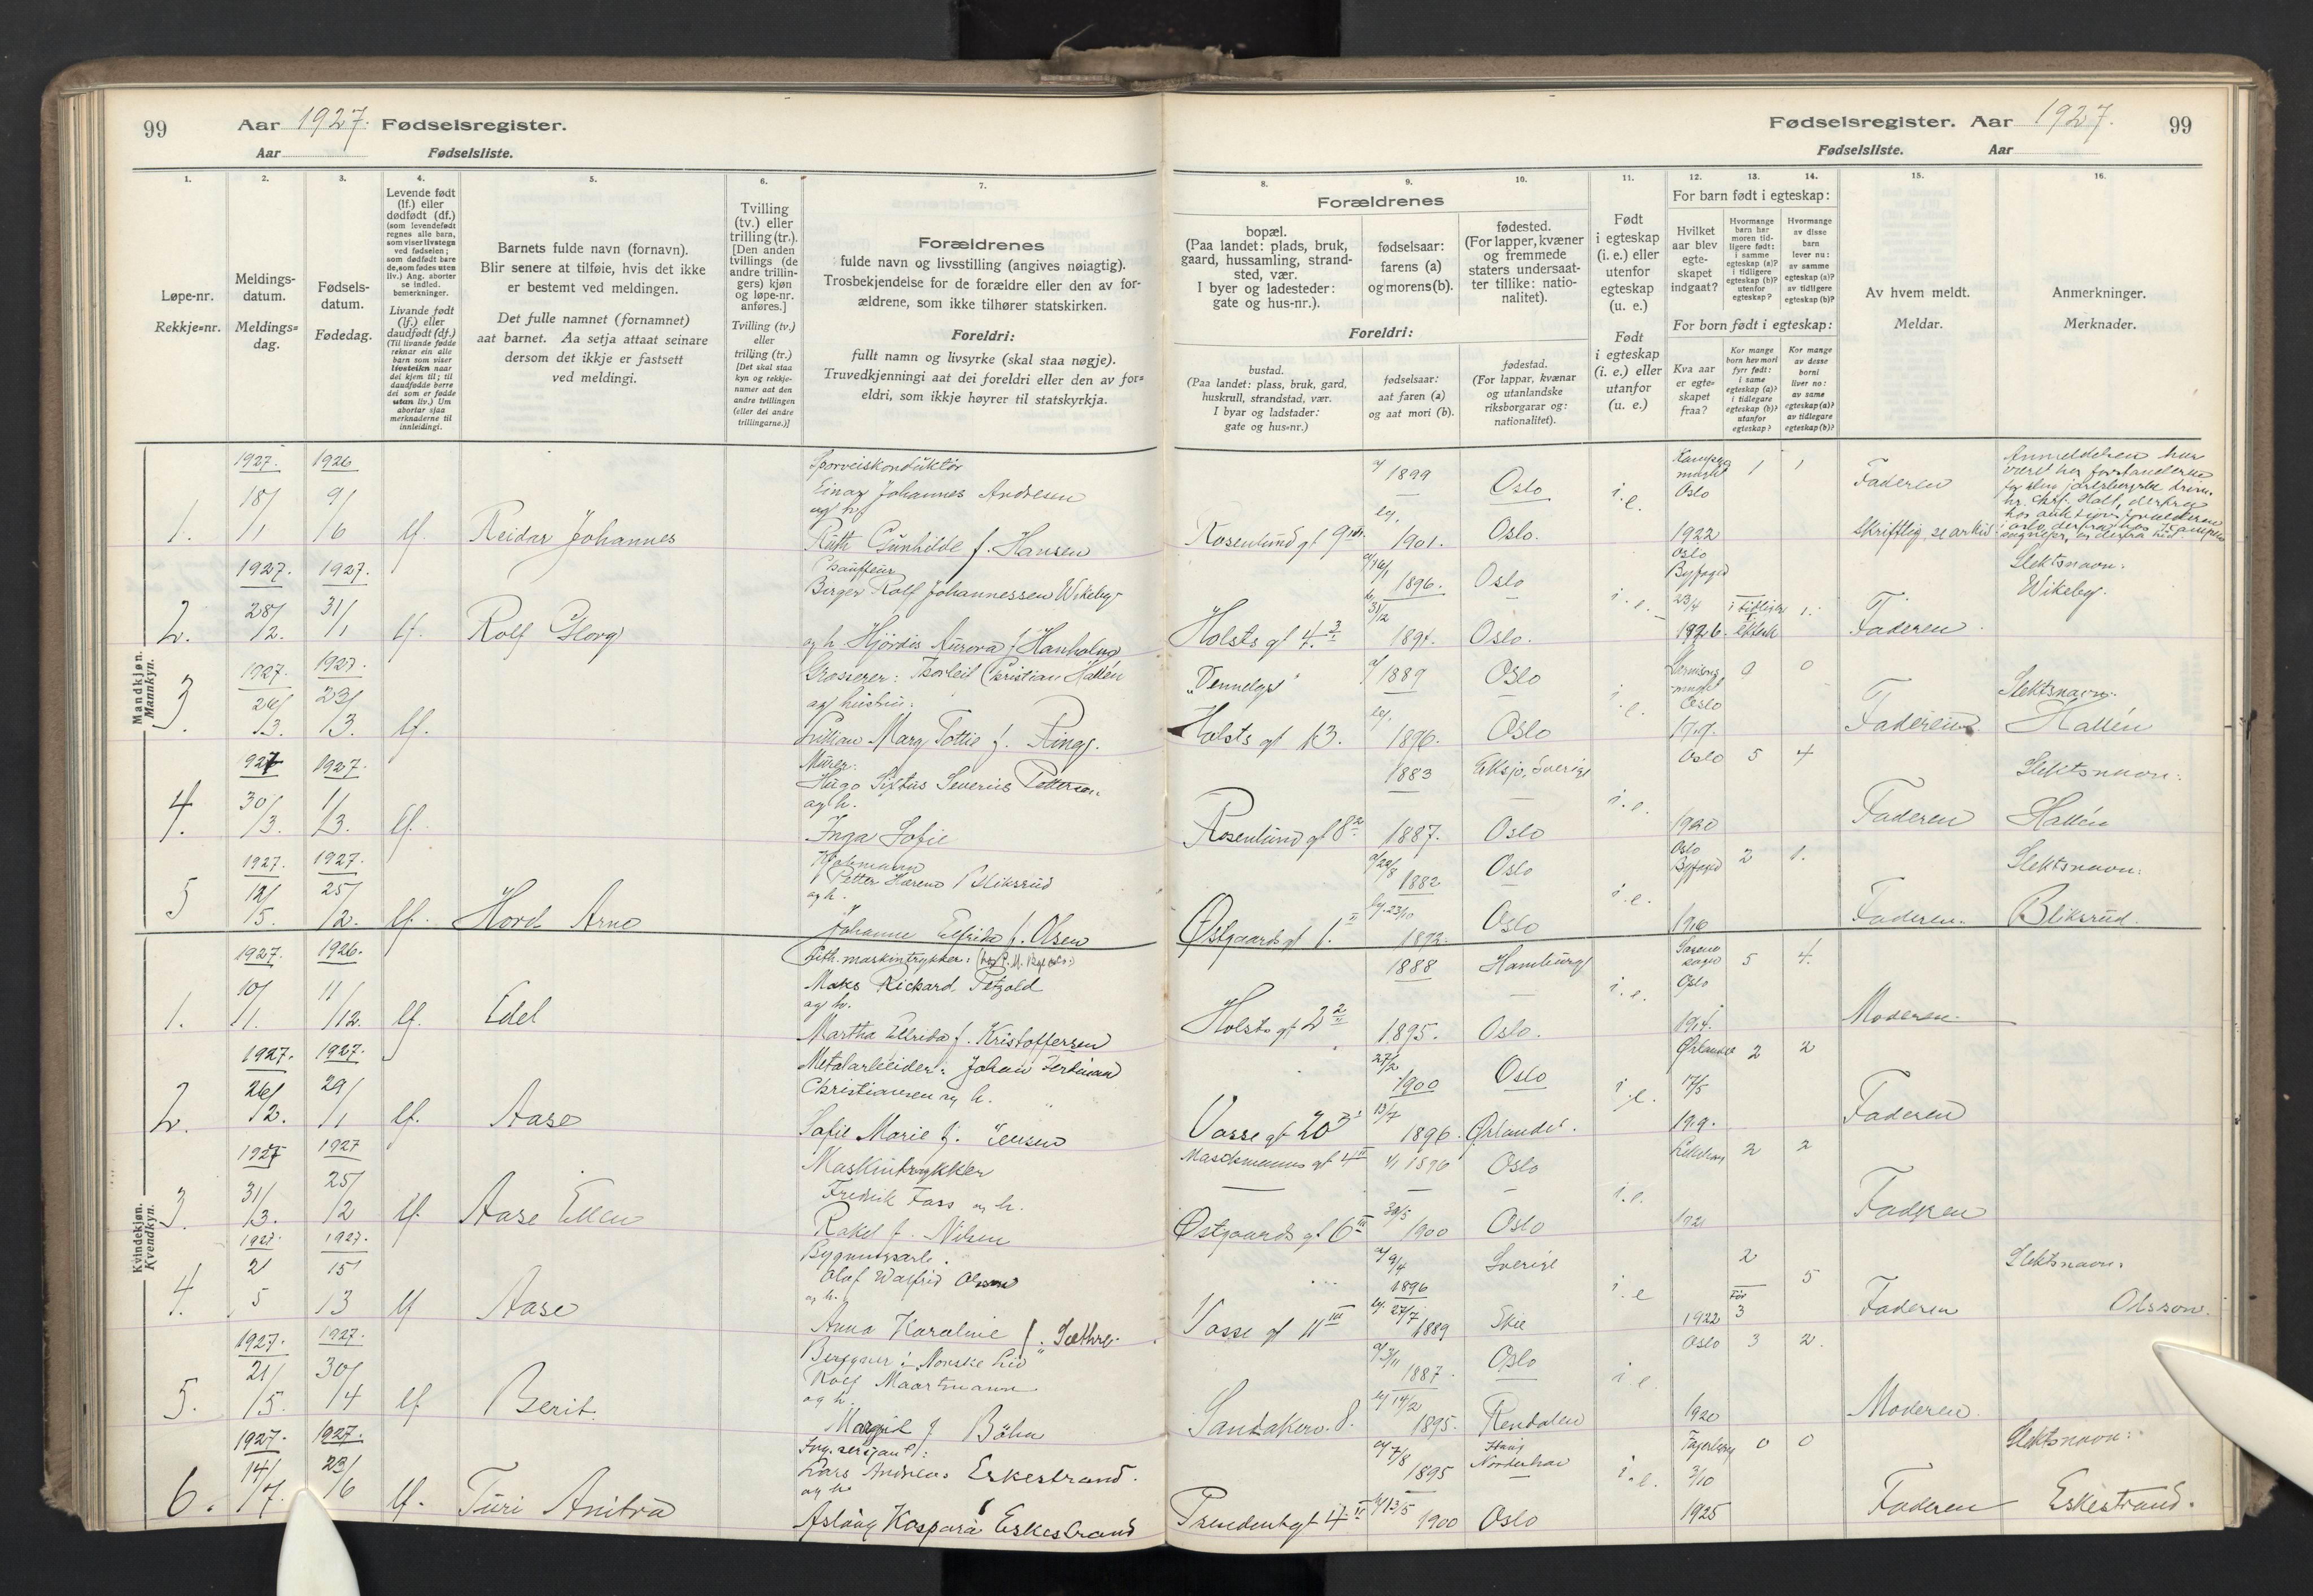 99 Aar 1927. Fødselsregister.
Aar Fødselsliste.
Fødselsregister. Aar 1927. 99
Fødselsliste. Aar
1.
Løpe-nr.
Rekkje=nr.
2.
Meldings-
datum.
Meldings=
dag.
3.
Fødsels-
datum.
Fødedag.
4.
Levende født
(lf.) eller
dødfødt (df.)
(som levendefødt
regnes alle barn,
som viser livstegn
ved fødselen;
som dødfødt bare
de, som fødes uten
liv.) Ang. aborter
se indled.
bemerkninger.
Livande født
(lf.) eller
daudfødt (df.)
(Til livande fødde
reknar ein alle
barn som viser
livsteikn naar
dei kjem til; til
daudfødde berre
dei som er fødde
utan liv.) Um
abortar sjaa
merknaderne til
innleidingi.
5.
Barnets fulde navn (fornavn).
Blir senere at tilføie, hvis det ikke
er bestemt ved meldingen.
Det fulle namnet (fornamnet)
aat barnet. Aa setja attaat seinare
dersom det ikkje er fastsett
ved meldingi.
6.
Tvilling
(tv.) eller
trilling (tr.).
[Den anden
tvillings (de
andre trillin-
gers) kjøn
og løpe-nr.
anføres.]
Tvilling (tv.)
eller
trilling (tr.)
[Det skal staa
kyn og rekkje-
numer aat den
andre tvillingen
(eller dei andre
trillingarne.)]
7.
Forældrenes
fulde navn og livsstilling (angives nøiagtig).
Trosbekjendelse for de forældre eller den av for-
ældrene, som ikke tilhører statskirken.
Foreldri:
fullt namn og livsyrke (skal staa nøgje).
Truvedkjenningi aat dei foreldri eller den av for=
eldri, som ikkje høyrer til statskyrkja.
Forældrenes
8.
bopæl.
(Paa landet: plads, bruk,
gaard, hussamling, strand-
sted, vær.
I byer og ladesteder:
gate og hus-nr.).
Foreldri:
bustad.
(Paa landet: plass, bruk, gard,
huskrull, strandstad, vær.
I byar og ladstader:
gate og hus=nr.)
9.
fødselsaar:
farens (a)
og morens (b).
fødselsaar:
aat faren (a)
og aat mori (b).
10.
fødested.
(For lapper, kvæner
og fremmede
staters undersaat-
ter tillike: natio-
nalitet).
fødestad.
(For lappar, kvænar
og utanlandske
riksborgarar og:
nationalitet).
11.
Født
i egteskap
(i. e.) eller
utenfor
egteskap
(u. e.)
Født
i egteskap
(i. e.) eller
utanfor
(u. e.)
12. 13. 14.
For barn født i egteskap:
Hvilket
aar blev
egte-
skapet
indgaat?
Hvormange
barn har
moren tid-
ligere født:
i samme
egteskap (a)?
i tidligere
egteskap (b)?
utenfor
egteskap?
Hvormange
av disse
barn
lever nu:
av samme
egteskap (a)?
av tidligere
egteskap (b)?
For born født i egteskap:
Kva aar
er egte=
skapet
fraa?
Kor mange
born hev mori
fyrr født:
i same
egteskap (a)?
i tidlegare
egteskap (b)?
utanfor
egteskap?
Kor mange
av desse
borni
liver no:
av same
egteskap (a)?
av tidlegare
egteskap (b)?
15.
Av hvem meldt.
Meldar.
16.
Anmerkninger.
Merknader.
Mandkjøn.
Mannkyn.
1927. 1926
1. 18/1 9/6 lf. Reidar Johannes
Sporveiskonduktør
Einar Johannes Andresen
og h.
Ruth Gunhilde f. Hansen
Rosenlund gt
1899 Oslo
1901. Oslo.
i. e.
Oslo
1922
1 1
Faderen
Skriftlig
Anmeldelsen har
1927. 1927.
2. 28/2. 31/1 lf. Rolf Georg
Chauffeur
Birger Rolf Johannessen Wikeby
og h. Hjördis Aurora f. Hanholm
Holsts gt 4.
1896. Oslo
31/12 1891. Oslo.
i. e.
Oslo
Byfoged
23/4
1926.
1.
Faderen
Slektsnavn:
Wikeby.
1927. 1927.
3. 26/3. 23/3. lf.
Grosserer: Thorleif Christian Hallén
og hustru:
Lillian Marg Tottie f. Ring.
Holsts gt 13.
1889 Oslo
1896. Oslo
i. e.
Oslo
0 0
Faderen
Slektsnavn.
Hallén
1927 1927.
4. 30/3. 1/3. lf.
Murer:
Hugo Sixtus Severius Petterson
og h.
Inga Sofie
Rosenlund gt 8
1883 Eksjo, Sverige
1887. Oslo
i. e.
Oslo 5 4
1920
Faderen
Slektsnavn:
Hallén
1927. 1927.
5 12/5. 25/2. lf. Hord Arno
Petter Bliksrud
og h.
Johanne Elfrida f. Olsen
Østgaards gt 1.
22/8 1882 Oslo
23/10 1892. Oslo
i. e.
Oslo
Byfoged 2 1.
1916
Faderen.
Slektsnavn:
Bliksrud.
Kvindekjøn.
Kvendkyn.
1927. 1926.
1. 10/1. 11/12. lf. Edel
Lith. maskintrykker:
Maks Rickard Petzold
og h.
Martha Elfrida f. Kristoffersen
Holsts gt 2
1888 Hamburg
1895. Oslo.
i. e.
Oslo
5 4.
1914.
Moderen
1927. 1927.
2. 26/2. 29/1 lf. Aase
Metalarbeider: Johan Ferdinand
Christiansen og h.
Sofie Marie f. Jensen
Vosse gt 20
27/2 1900 Oslo
13/7 1896. Ørlandet.
i. e.
Ørlandet 2 2
17/5
1919.
Faderen
1927 1927
3. 31/3. 25/2 lf. Aase Ellen
Maskintrykker
Fredrik Fass og h.
Rakel f. Nilsen
Maschmanns gt 4
Østgaards gt 6 III
1896 Oslo
30/5 1900 Oslo
i. e.
2 2
1921
Faderen
1927. 1927.
4. 2/5 15/3 lf Aase
Bygningsarb.
Olaf Walfrid Olsson
og h.
Anna Karoline f. Sæthre.
Vosse gt 11 III
9/4 1896 Sverige
27/7 1889 Skie
i. e
1922
2
Før
3
5
Faderen
Slektsnavn.
Olsson.
1927. 1927.
5. 21/5. 30/4 lf Berit.
Rolf Maartmann
og h.
Margit f Böhn
Sandakerv. 8.
3/11 1887. Oslo
14/2 1895. Rendalen
i. e.
Oslo 3 2.
1920
Moderen
1927. 1927.
6. 14/7. 23/6 lf. Turi Anitra
Ing. sersjant:
Lars Andreas Eskestrand.
og h.
Aslaug Kaspara Eskestrand
Presidentgt 4 II
7/8 1895 Norderhov
13/5 1900 Oslo
i. e.
Fagerborg 0 0
3/10
1925
Faderen
Slektsnavn:
Eskestrand.